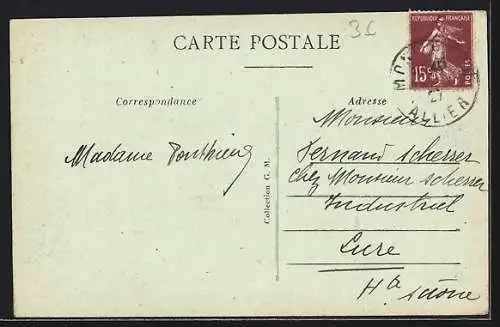 3€
CARTE POSTALE
RÉPUBLIQUE FRANÇAISE
15c
POSTES
27
ALLIER
Correspondance
Adresse
Madame Ponthieux
Collection G. M.
Monsieur
Fernand Scherrer
chez Monsieur Scherrer
Industriel
Lure
Hte Saône